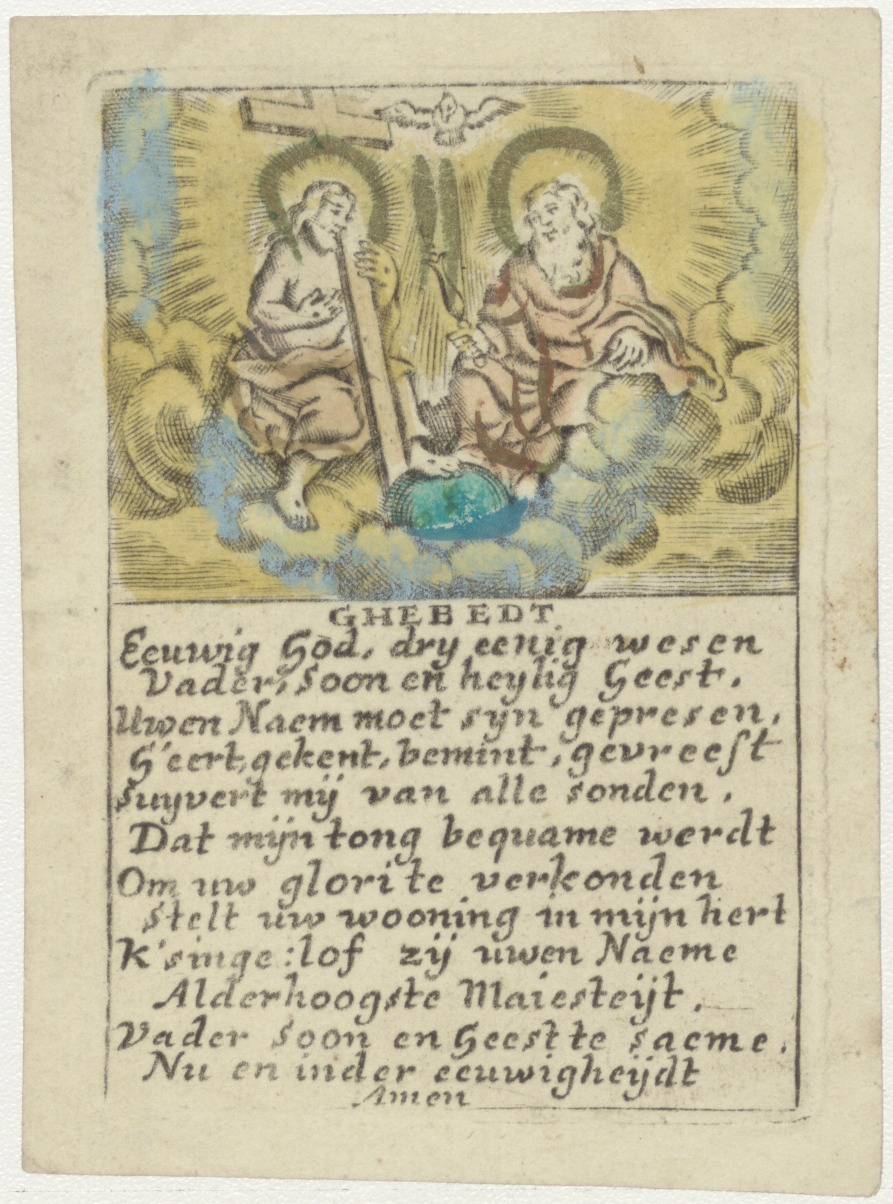 GHEBEDT
Eeuwig God, dry eenig wesen
Vader, Soon en heylig Geest.
Uwen Naem moet sijn gepresen,
G'eert, gekent, bemint, gevreest
Suyvert mij van alle sonden,
Dat mijn tong bequame werdt
Om uw glori te verkonden
Stelt uw wooning in mijn hert
K'singe: lof zij uwen Naeme
Alderhoogste Maiesteijt,
Vader Soon en Geest te saeme,
Nu en in der eeuwigheijdt
Amen